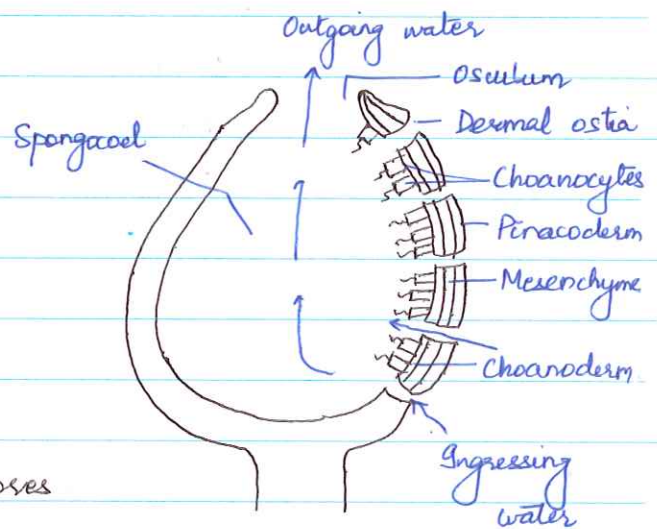 Outgoing water
Osculum
Dermal ostia
Spongocoel
Choanocytes
Pinacoderm
Mesenchyme
Choanoderm
Ingressing
water